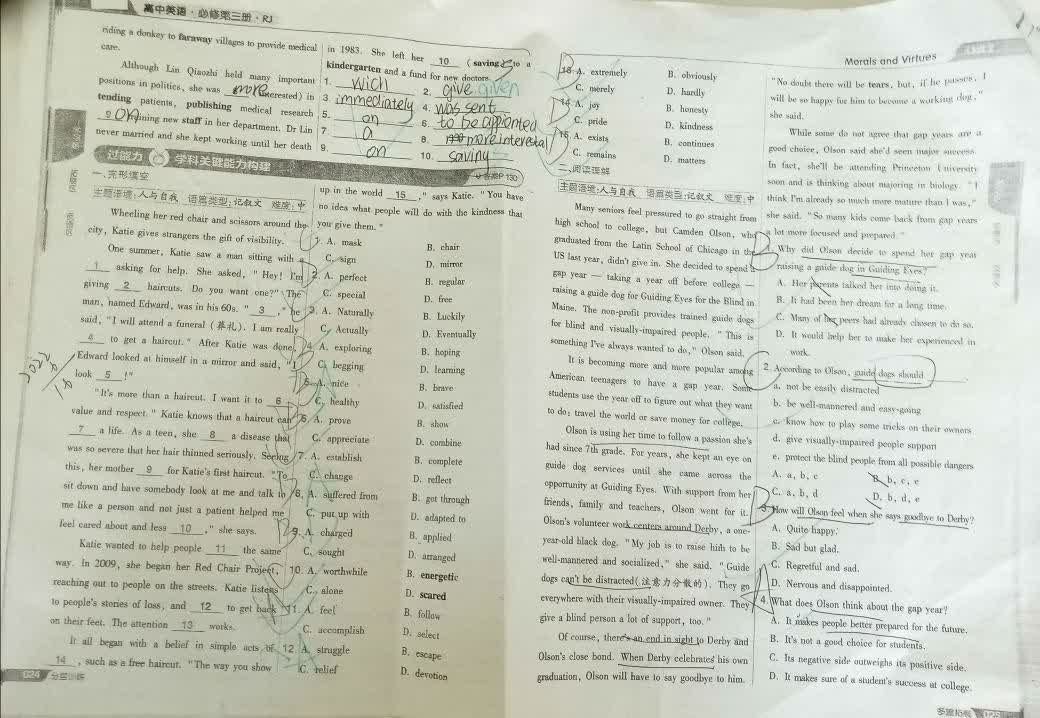 高中英语·必修第三册·RJ
riding a donkey to faraway villages to provide medical
care.
Although Lin Qiaozhi held many important
positions in politics, she was more (interested) in
tending patients, publishing medical research
9 On training new staff in her department. Dr Lin
never married and she kept working until her death
in 1983. She left her 10 (saving) to a
kindergarten and a fund for new doctors.
1. which 2. give given
3. immediately 4. was sent
5. on 6. to be appionted
7. a 8. more interestal
9. on 10. saviny
答案P 130
过能力 学科关键能力构建
一、完形填空
主题语境:人与自我 语篇类型:记叙文 难度:中
Wheeling her red chair and scissors around the
city, Katie gives strangers the gift of visibility.
One summer, Katie saw a man sitting with a
1 asking for help. She asked, "Hey! I'm
giving 2 haircuts. Do you want one?" The
man, named Edward, was in his 60s. "3," he
said, "I will attend a funeral (葬礼). I am really
4 to get a haircut." After Katie was done,
Edward looked at himself in a mirror and said, "I
look 5!"
"It's more than a haircut. I want it to 6
value and respect." Katie knows that a haircut can
7 a life. As a teen, she 8 a disease that
was so severe that her hair thinned seriously. Seeing
this, her mother 9 for Katie's first haircut. "To
sit down and have somebody look at me and talk to
me like a person and not just a patient helped me
feel cared about and less 10," she says.
Katie wanted to help people 11 the same
way. In 2009, she began her Red Chair Project,
reaching out to people on the streets. Katie listens
to people's stories of loss, and 12 to get back
on their feet. The attention 13 works.
It all began with a belief in simple acts of
14, such as a free haircut. "The way you show
up in the world 15," says Katie. "You have
no idea what people will do with the kindness that
you give them."
1. A. mask B. chair
C. sign D. mirror
2. A. perfect B. regular
C. special D. free
3. A. Naturally B. Luckily
C. Actually D. Eventually
4. A. exploring B. hoping
C. begging D. learning
5. A. nice B. brave
C. healthy D. satisfied
6. A. prove B. show
C. appreciate D. combine
7. A. establish B. complete
C. change D. reflect
8. A. suffered from B. got through
C. put up with D. adapted to
9. A. charged B. applied
C. sought D. arranged
10. A. worthwhile B. energetic
C. alone D. scared
11. A. feel B. follow
C. accomplish D. select
12. A. struggle B. escape
C. relief D. devotion
024 分层训练
Morals and Virtues
13. A. extremely B. obviously
C. merely D. hardly
14. A. joy B. honesty
C. pride D. kindness
15. A. exists B. continues
C. remains D. matters
二、阅读理解
主题语境:人与自我 语篇类型:记叙文 难度:中
Many seniors feel pressured to go straight from
high school to college, but Camden Olson, who
graduated from the Latin School of Chicago in the
US last year, didn't give in. She decided to spend a
gap year — taking a year off before college —
raising a guide dog for Guiding Eyes for the Blind in
Maine. The non-profit provides trained guide dogs
for blind and visually-impaired people. "This is
something I've always wanted to do," Olson said.
It is becoming more and more popular among
American teenagers to have a gap year. Some
students use the year off to figure out what they want
to do; travel the world or save money for college.
Olson is using her time to follow a passion she's
had since 7th grade. For years, she kept an eye on
guide dog services until she came across the
opportunity at Guiding Eyes. With support from her
friends, family and teachers, Olson went for it.
Olson's volunteer work centers around Derby, a one-
year-old black dog. "My job is to raise him to be
well-mannered and socialized," she said. "Guide
dogs can't be distracted(注意力分散的). They go
everywhere with their visually-impaired owner. They
give a blind person a lot of support, too."
Of course, there's an end in sight to Derby and
Olson's close bond. When Derby celebrates his own
graduation, Olson will have to say goodbye to him.
"No doubt there will be tears, but, if he passes, I
will be so happy for him to become a working dog,"
she said.
While some do not agree that gap years are a
good choice, Olson said she'd seen major success.
In fact, she'll be attending Princeton University
soon and is thinking about majoring in biology. "I
think I'm already so much more mature than I was,"
she said. "So many kids come back from gap years
a lot more focused and prepared."
1. Why did Olson decide to spend her gap year
raising a guide dog in Guiding Eyes?
A. Her parents talked her into doing it.
B. It had been her dream for a long time.
C. Many of her peers had already chosen to do so.
D. It would help her to make her experienced in
work.
2. According to Olson, guide dogs should
a. not be easily distracted
b. be well-mannered and easy-going
c. know how to play some tricks on their owners
d. give visually-impaired people support
e. protect the blind people from all possible dangers
A. a, b, c B. b, c, e
C. a, b, d D. b, d, e
3. How will Olson feel when she says goodbye to Derby?
A. Quite happy.
B. Sad but glad.
C. Regretful and sad.
D. Nervous and disappointed.
4. What does Olson think about the gap year?
A. It makes people better prepared for the future.
B. It's not a good choice for students.
C. Its negative side outweighs its positive side.
D. It makes sure of a student's success at college.